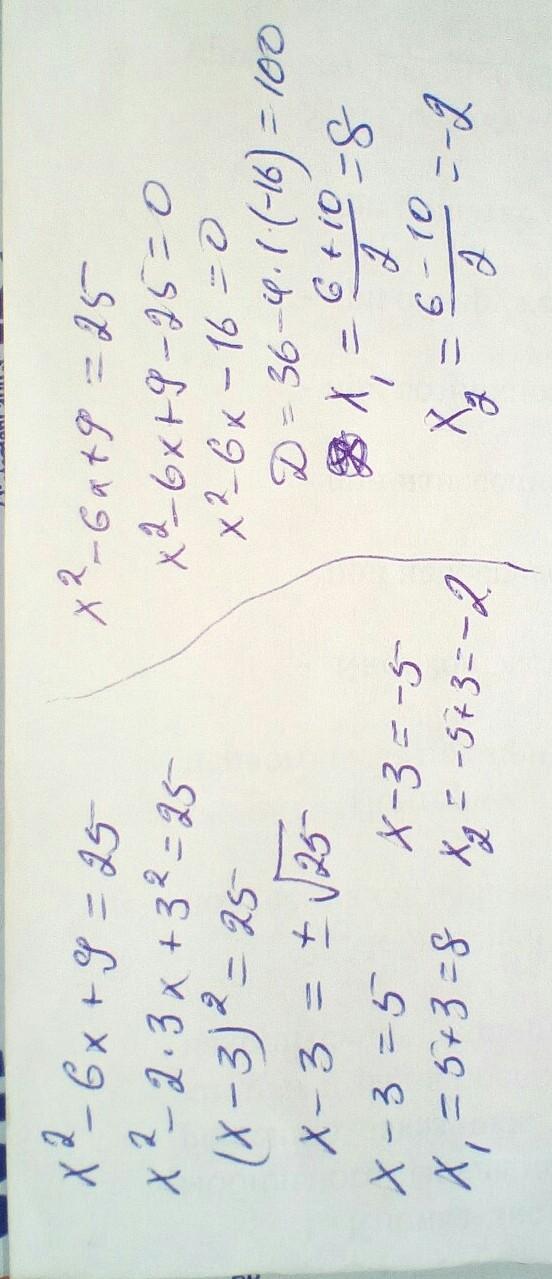 x² - 6x + 9 = 25
x² - 2·3x + 3² = 25
(x - 3)² = 25
x - 3 = ±√25
x - 3 = 5    x - 3 = -5
x₁ = 5+3=8    x₂ = -5+3=-2
x² - 6x + 9 = 25
x² - 6x + 9 - 25 = 0
x² - 6x - 16 = 0
D = 36 - 4·1·(-16) = 100
x₁ = (6 + 10)/2 = 8
x₂ = (6 - 10)/2 = -2